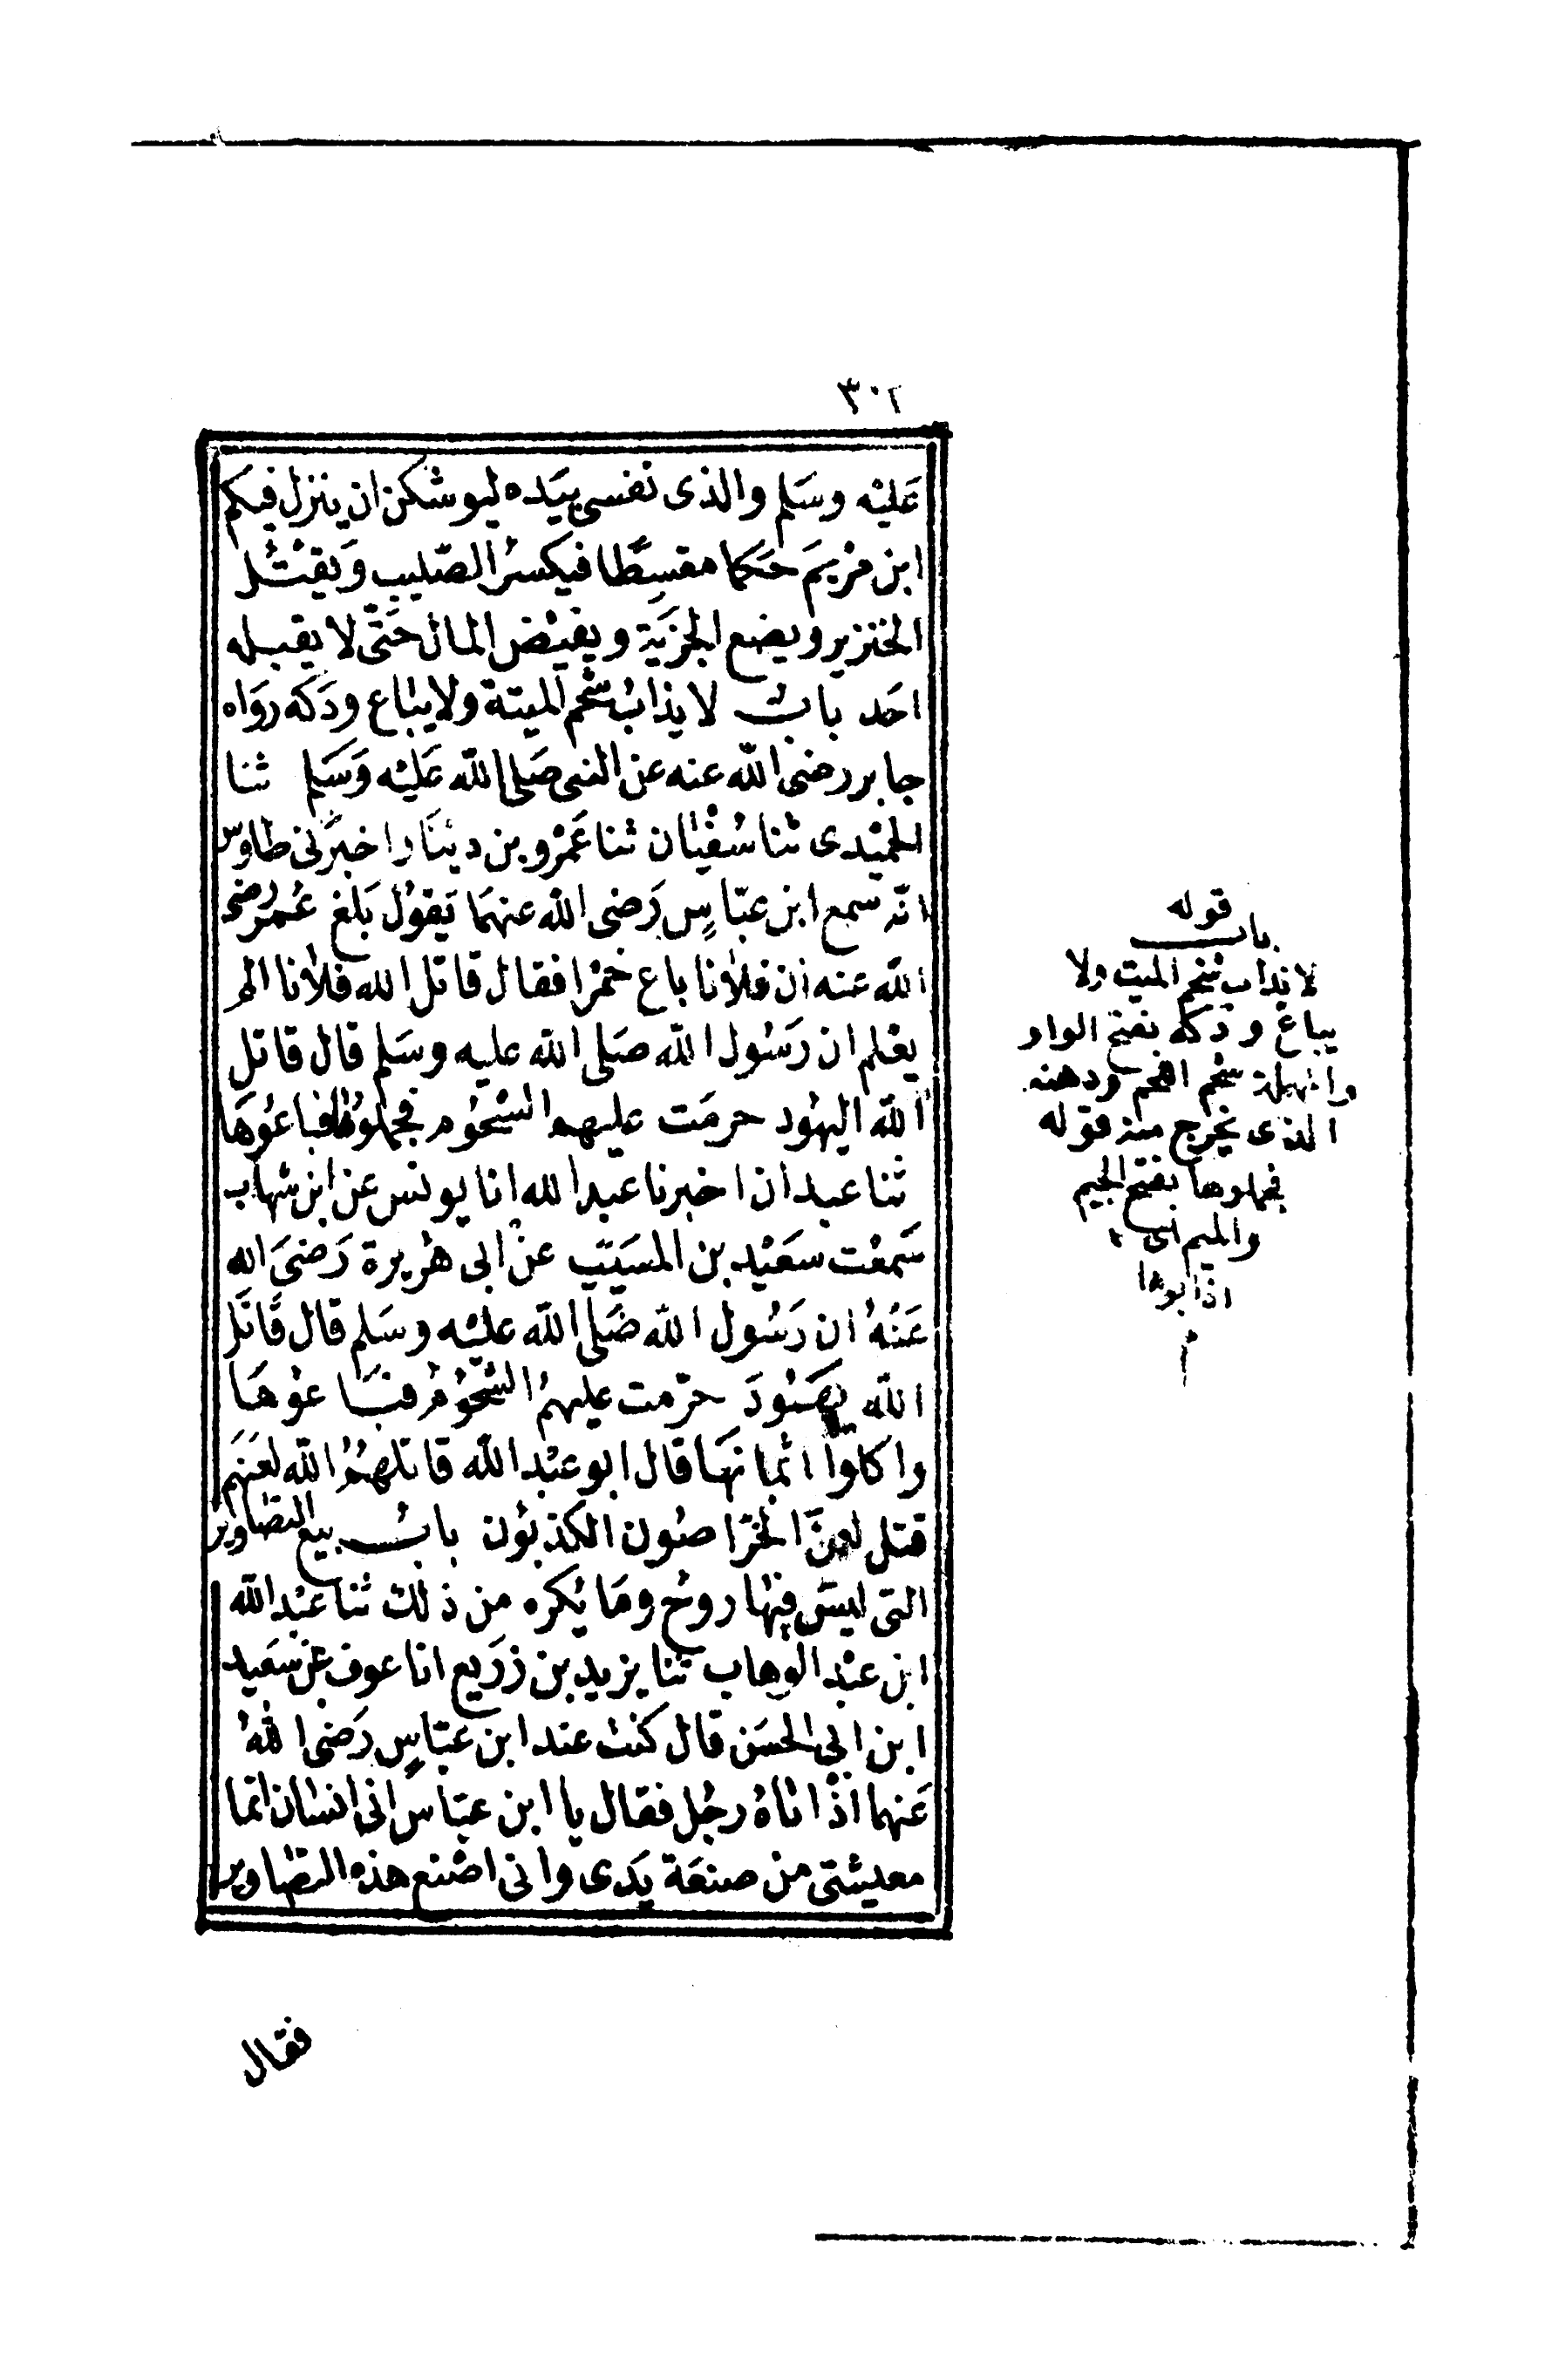 ٣٠٢
عَليْه وسَلم والذى نفسى بيَده ليوشكن ان ينزل فيكم
ابن مَرْيَمَ حَكما مقسِطًا فيكسرُ الصّليب وَيقْتُل
الخنزير ويضع الجزيَة ويفيْض المال حَتّى لا يقبله
احَد بابُ لا يذابُ شحم الميتة ولا يبَاع ودَكه روَاه
جابر رضى الله عنه عن النبى صَلى الله عَليْه وَسَلم ثنا
الحميْدى ثنا سُفْيَان ثنا عَمْرو بن دينَار اخبرَنى طاوس
انّه سمع ابن عبّاسٍ رَضى الله عنهمَا يَقوُل بَلغ عُمر رضى
الله عنه ان فلاَنا باع خمْرا فقال قاتل الله فلاَنا الم
يعْلم ان رَسُول الله صَلى الله عليه وسَلم قال قاتل
الله اليهُود حرمَت عليهم الشحُوم فجملوُها فباعُوهَا
ثنا عبدان اخبرنا عبد الله انا يونس عن ابن شهاب
سَمعْت سعَيْد بن المسَيّب عنْ ابى هُريرة رَضىَ الله
عَنْهُ ان رَسُول الله صَلى الله عليْه وسَلم قال قَاتَل
الله يهَُودَ حرّمت عليهمُ الشحُوُم فبَاعُوهَا
واكلوا اثمانهَا قال ابو عبْد الله قاتلهمُ الله لعَنهَم
قتل لعنَ الخرّاصُون الكذبُون بابُ بيع التصَاوير
التى ليسَ فيْها روحُ ومَا يُكره من ذلك ثنا عَبْد الله
ابن عبْد الوهاب ثنا يزيد بن زرَيع انا عوف عن سَعيد
ابن ابى الحسَن قال كنت عند ابن عبّاسٍ رَضى اللهُ
عَنهما اذْ اتاهُ رجُل فقال يا ابن عبّاس انى انسَان انما
معيشتى من صنعَة يَدى وانى اصْنع هذه التصَاوير
فقال
قوله
باب
لا يذاب شحم الميت ولا
يباع ودكه بفتح الواو
والمهملة شحم اللحم ودهنه
الذى يخرج منه قوله
فجملوها بفتح الجيم
والميم اى
اذابوها
م